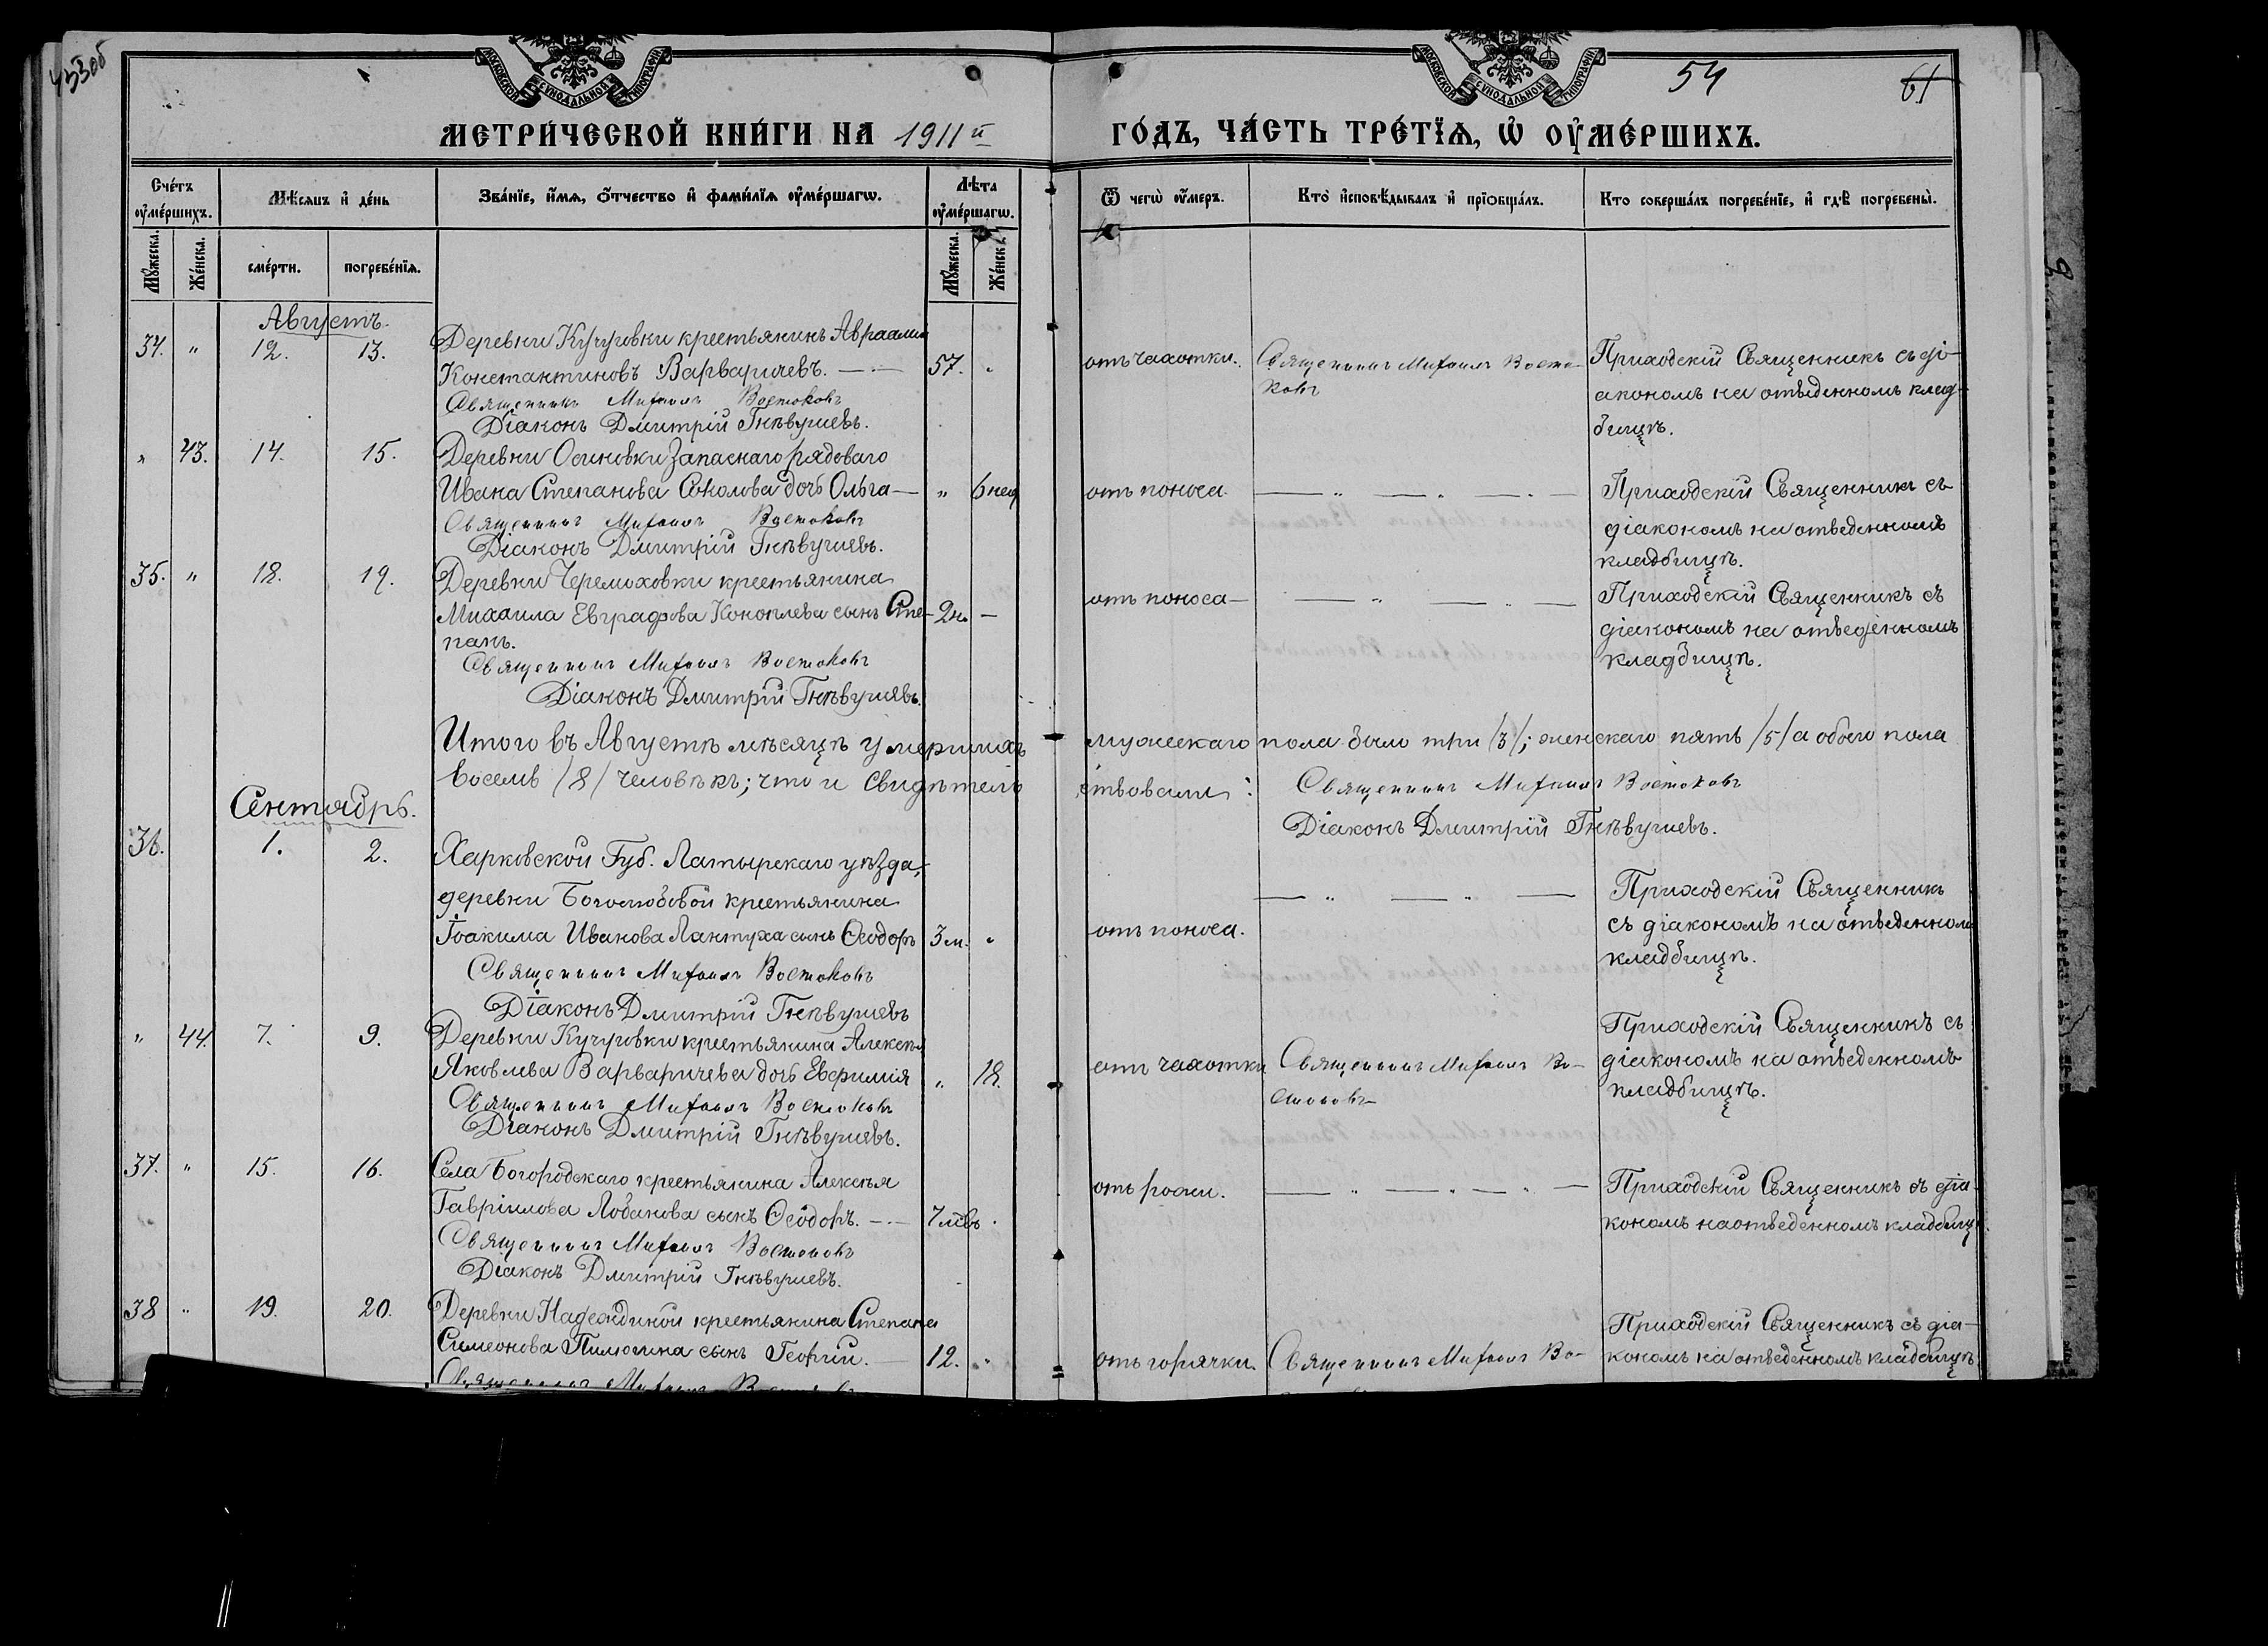 453об
МОСКОВСКОЙ СѴНОДАЛЬНОЙ ТИПОГРАФІИ
МОСКОВСКОЙ СѴНОДАЛЬНОЙ ТИПОГРАФІИ
54
61
МЕТРИ́ЧЕСКОЙ КНИ́ГИ НА 1911й
ГО́ДЪ, ЧА́СТЬ ТРЕ́ТЇѦ, Ѡ҆ ОУ҆МЕ́РШИХЪ.
Сче́тъ оу҆ме́ршихъ.
Мꙋ́жеска.
Же́нска.
Мѣ́сѧцъ и҆ де́нь
сме́рти.
погребе́нїѧ.
Зва́нїе, и҆́мѧ, ѻ҆́тчество и҆ фами́лїѧ оу҆ме́ршагѡ.
Лѣ́та оу҆ме́ршагѡ.
Мꙋ́жеска.
Же́нск.
Ѿ чегѡ̀ оу҆́меръ.
Кто̀ и҆сповѣ́дывалъ и҆ прїѻбща́лъ.
Кто соверша́лъ погребе́нїе, и҆ гдѣ̀ погребены̀.
Августъ.
34. " 12. 13.
Деревни Кучуровки крестьянинъ Авраамъ
Константиновъ Варваричевъ. 57.
Священникъ Михаилъ Востоковъ
Діаконъ Дмитрій Гнѣвушевъ.
отъ чахотки.
Священникъ Михаилъ Восто-
ковъ
Приходскій Священникъ съ ді-
акономъ на отведенномъ клад-
бищѣ.
" 43. 14. 15.
Деревни Осиновки Запаснаго рядоваго
Ивана Степанова Соколова дочь Ольга — " 6 нед
Священникъ Михаилъ Востоковъ
Діаконъ Дмитрій Гнѣвушевъ.
отъ поноса.
Приходскій Священникъ съ
діакономъ на отведенномъ
кладбищѣ.
35. " 18. 19.
Деревни Черемховки крестьянина
Михаила Евграфова Коноплева сынъ Сте- 2н. —
панъ.
Священникъ Михаилъ Востоковъ
Діаконъ Дмитрій Гнѣвушевъ.
отъ поноса —
Приходскій Священникъ съ
діакономъ на отведенномъ
кладбищѣ.
Итого въ Августѣ мѣсяцѣ умершихъ мужескаго пола было три /3/; женскаго пять /5/ а обоего пола
восемь /8/ человѣкъ; что и свидѣтельствовали:
Священникъ Михаилъ Востоковъ
Діаконъ Дмитрій Гнѣвушевъ.
Сентябрь.
36. 1. 2.
Харковской Губ. Латырскаго уѣзда,
деревни Боголюбовой крестьянина
Іоакима Иванова Лантуха сынъ Ѳеодоръ 3 м.
Священникъ Михаилъ Востоковъ
Діаконъ Дмитрій Гнѣвушевъ
отъ поноса.
Приходскій Священникъ
съ діакономъ на отведенномъ
кладбищѣ.
" 44. 7. 9.
Деревни Кучуровки крестьянина Алексѣя
Яковлева Варваричева дочь Евфимія " 18.
Священникъ Михаилъ Востоковъ
Діаконъ Дмитрій Гнѣвушевъ.
отъ чахотки
Священникъ Михаилъ Во-
стоковъ
Приходскій Священникъ съ
діакономъ на отведенномъ
кладбищѣ.
37. " 15. 16.
Села Богородскаго крестьянина Алексѣя
Гавріилова Лобанова сынъ Ѳеодоръ. 7 мѣс
Священникъ Михаилъ Востоковъ
Діаконъ Дмитрій Гнѣвушевъ.
отъ рожи.
Приходскій Священникъ съ діа-
кономъ на отведенномъ кладбищ
38 " 19. 20.
Деревни Надеждиной крестьянина Степана
Симеонова Пимосина сынъ Георгій. 12.
Священникъ Михаилъ Востоковъ
отъ горячки.
Священникъ Михаилъ Во-
Приходскій Священникъ съ діа-
кономъ на отведенномъ кладбищѣ